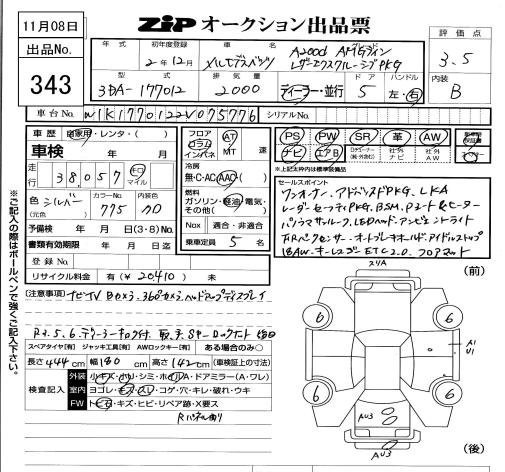 11月08日
出品No.
343
ZiP オークション出品票
評価点
3.5
内装
B
年式 初年度登録 車名 グレード
2年12月 メルセデスベンツ A200d AMGライン
レザーエクスクルーシブPKG
型式 排気量 ドア ハンドル
3DA-177012 2000 ディーラー・並行 5 左・右
車台No. W1K1770122V075776 シリアルNo.
車歴 自家用・レンタ・( )
車検 年 月 日
走行 38,057 km マイル
色 シルバー (元色) カラーNo. 775 内装色 クロ
予備検 年 月 日(3・8)No.
書類有効期限 年 月 日迄
登録No.
リサイクル料金 有(¥20410) 未
フロア コラム インパネ AT MT 速
冷房 無・C・AC・AAC
燃料 ガソリン・軽油・電気・その他( )
Nox 適合・非適合
乗車定員 5 名
PS PW SR 革 AW
ナビ エアB 社外ナビ 社外AW
※上記太枠内は標準装備品
セールスポイント
ワンオーナー、アドバンスドPKG. LKA
レーダーセーフティPKG. BSM. Pシートヒーター
パノラマサンルーフ. LEDヘッド. アンビエントライト
F.Rパークセンサー. オートブレーキホールド. アイドルストップ
18AW. キーレスゴー ETC2.0. フロアマット
※ご記入の際はボールペンで強くご記入下さい。
(注意事項) ナビTV Bカメラ. 360°カメラ. ヘッドアップディスプレイ
スペアタイヤ[有] ジャッキ工具[有] AWロックキー[有] ある場合のみ○
長さ444cm 幅180cm 高さ142cm (車検証上の寸法)
検査記入
外装 小キズ・小凹・シミ・ホイルA・ドアミラー(A・ワレ)
室内 ヨゴレ・キズ・スレ・コゲ・穴・キレ・破れ・ウキ
FW トビ石・キズ・ヒビ・リペア跡・X要ス
スリA
(前)
6 6
A1
U1
6 6
AU3
AU3
(後)